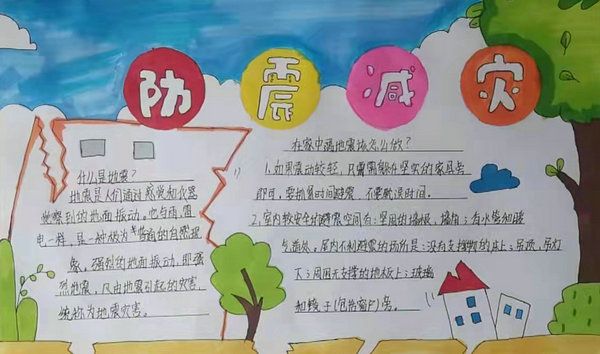 防震减灾
什么是地震?
地震是人们通过感觉和仪器
觉察到的地面振动,它与雨、雷
电一样,是一种极为普遍的自然现
象,强烈的地面振动,即强
烈地震,凡由地震引起的灾害,
统称为地震灾害。
在家中遇地震该怎么做?
1.如果震动较轻,只需躲在坚实的家具旁
即可,要抓紧时间避震,不要耽误时间。
2.室内较安全的避震空间有:坚固的墙根、墙角;有水管和暖
气道处,屋内不利避震的场所是:没有支撑物的床上;吊顶、吊灯
下;周围无支撑的地板上;玻璃
和镜子(包括窗户)旁。